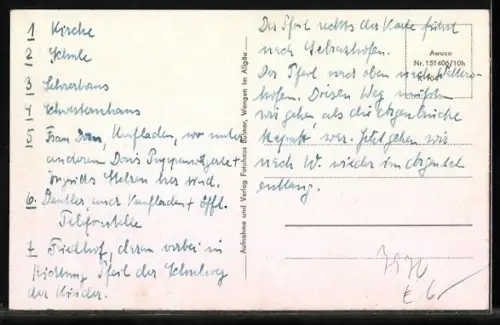 1 Kirche
2 Schule
3 Lehrerhaus
4 Schwesternhaus
5 Frau Dorn, Kaufladen, wo unter
anderem Doris Puppenwiegerle +
Ingrids Stelzen her sind.
6. Dentler, und Kaufladen + öfftl.
Telefonstelle
7 Friedhof, daran vorbei in
Richtung Pfeil der Schulweg
der Kinder.
Aufnahme und Verlag Fotohaus Wangen im Allgäu
Der Pfeil rechts der Karte führt
nach Gebrazhofen.
Der Pfeil nach oben nach
hofen. Diesen Weg mußten
wir gehen, als die Argenbrücke
kaputt war. Jetzt gehen wir
nach W. wieder im Argental
entlang.
Awuco
Nr. 151406/10h